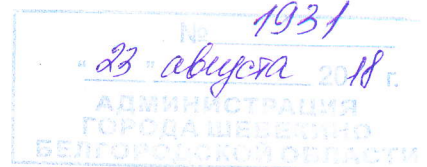 № 1931
"23" августа 2018 г.
АДМИНИСТРАЦИЯ
ГОРОДА ШЕБЕКИНО
БЕЛГОРОДСКОЙ ОБЛАСТИ